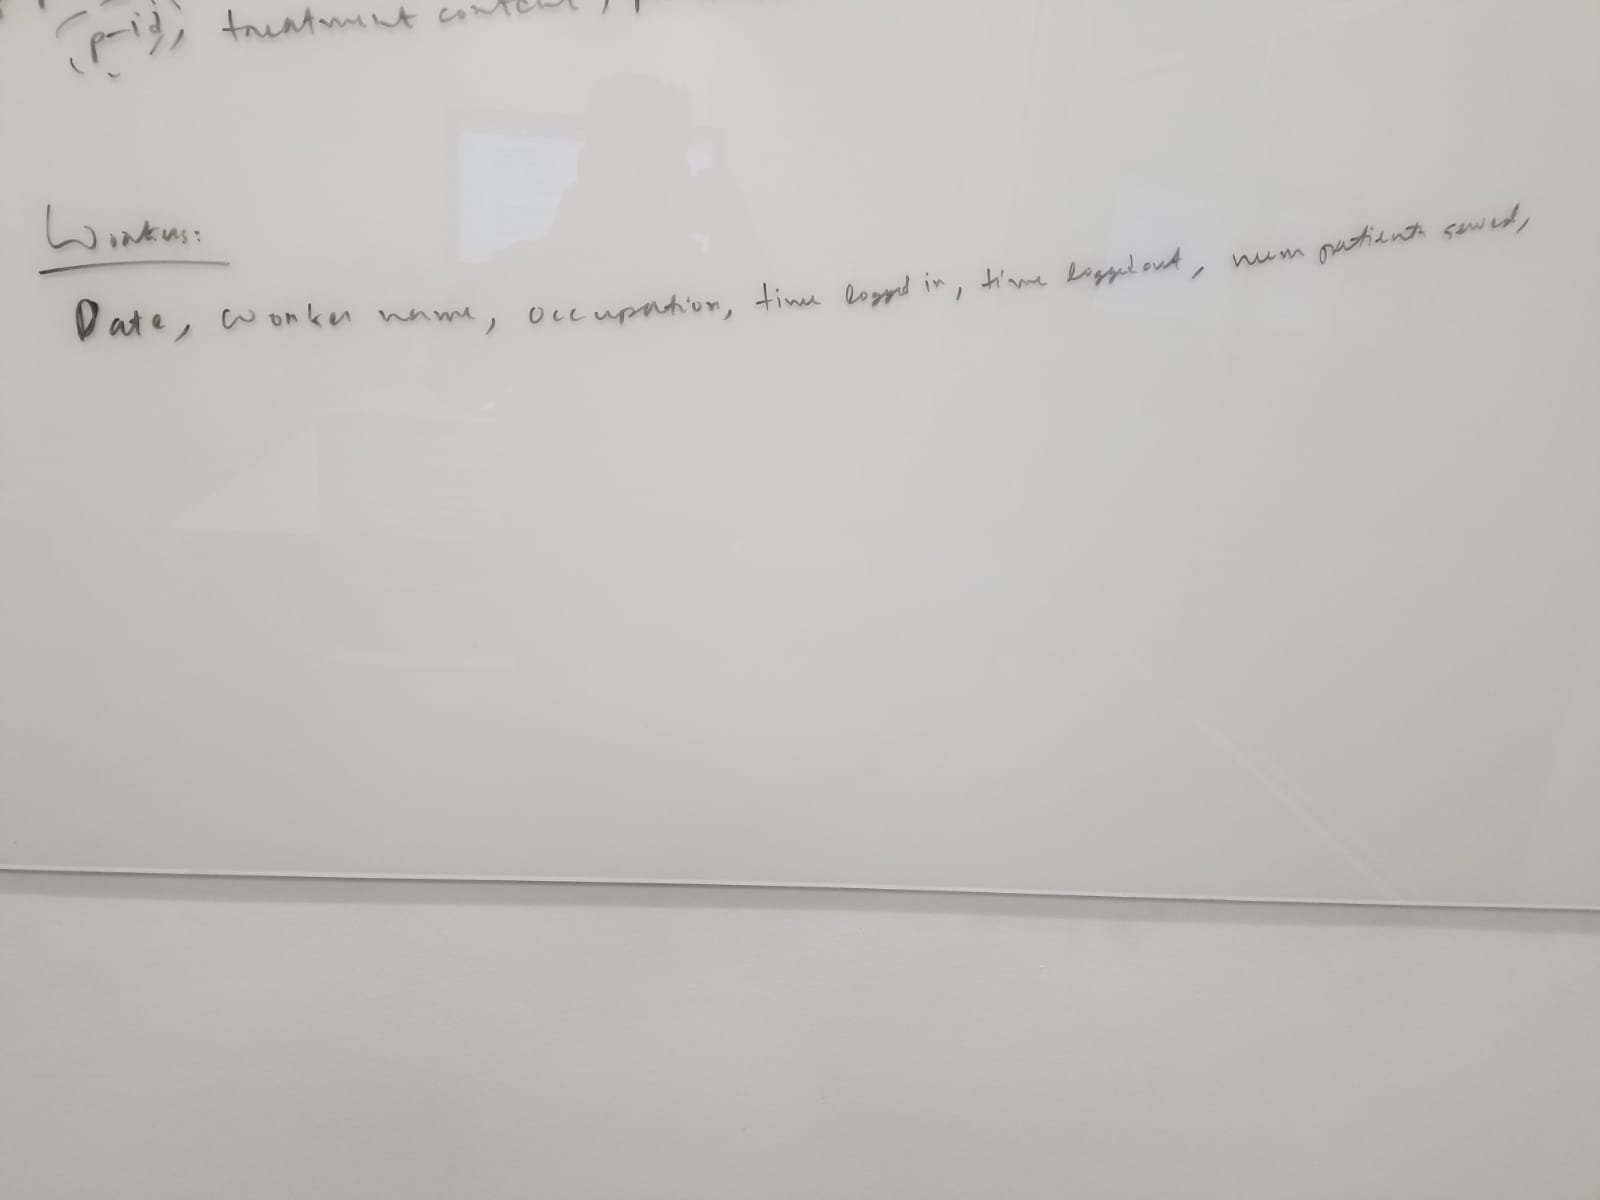 (p-id), treatment content,
Workers:
Date, worker name, occupation, time logged in, time logged out, num patients served,